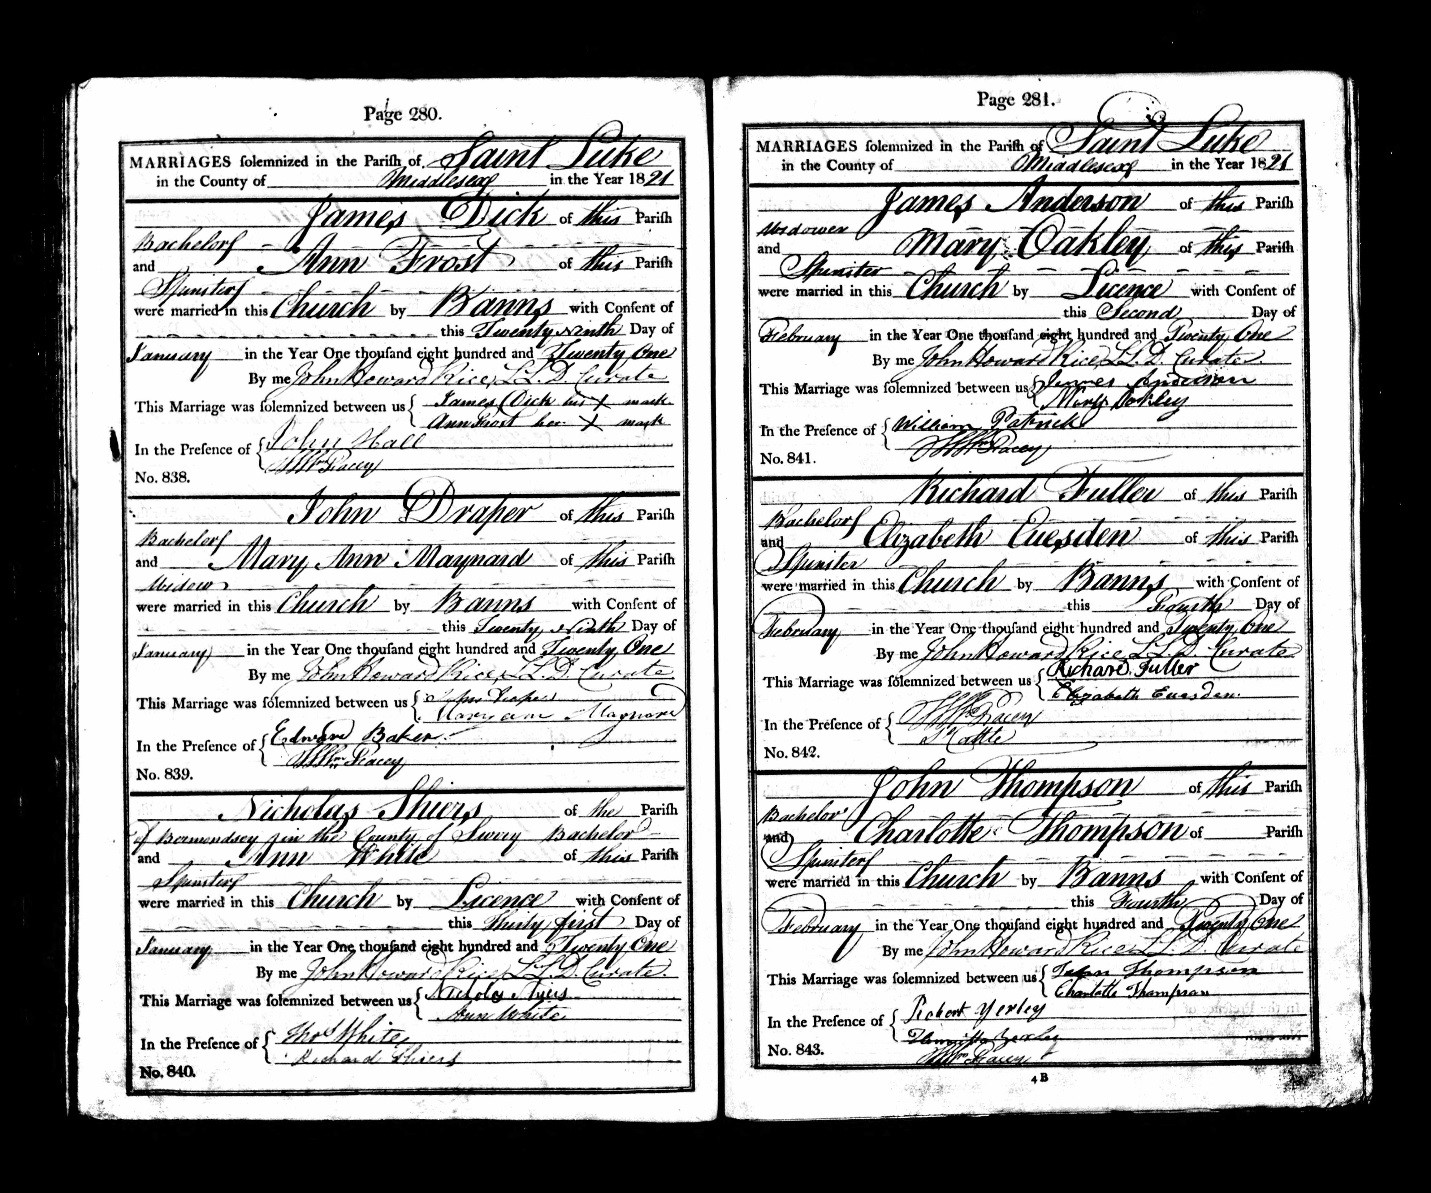 Page 280.
MARRIAGES solemnized in the Parish of Saint Luke
in the County of Middlesex in the Year 1821
James Dick of this Parish
Bachelor
and Ann Frost of this Parish
Spinster
were married in this Church by Banns with Consent of
this Twenty Ninth Day of
January in the Year One thousand eight hundred and Twenty One
By me John Howard Rice, L.L.D. Curate
This Marriage was solemnized between us James Dick his X mark
Ann Frost her X mark
In the Presence of John Hall
Wm Pracey
No. 838.
John Draper of this Parish
Bachelor
and Mary Ann Maynard of this Parish
Widow
were married in this Church by Banns with Consent of
this Twenty Ninth Day of
January in the Year One thousand eight hundred and Twenty One
By me John Howard Rice, L.L.D. Curate
This Marriage was solemnized between us John Draper
Mary ann Maynard
In the Presence of Edward Baker
Wm Pracey
No. 839.
Nicholas Shiers of the Parish
of Bermondsey in the County of Surry Bachelor
and Ann White of this Parish
Spinster
were married in this Church by Licence with Consent of
this Thirty first Day of
January in the Year One thousand eight hundred and Twenty One
By me John Howard Rice, L.L.D. Curate
This Marriage was solemnized between us
Ann White
In the Presence of Thos White
Richard Shiers
No. 840.
Page 281.
MARRIAGES solemnized in the Parish of Saint Luke
in the County of Middlesex in the Year 1821
James Anderson of this Parish
Widower
and Mary Oakley of this Parish
Spinster
were married in this Church by Licence with Consent of
this Second Day of
February in the Year One thousand eight hundred and Twenty One
By me John Howard Rice, L.L.D. Curate
This Marriage was solemnized between us James Anderson
Mary Oakley
In the Presence of William Patrick
Wm Pracey
No. 841.
Richard Fuller of this Parish
Bachelor
and Elizabeth Euesden of this Parish
Spinster
were married in this Church by Banns with Consent of
this Fourth Day of
February in the Year One thousand eight hundred and Twenty One
By me John Howard Rice, L.L.D. Curate
This Marriage was solemnized between us Richard Fuller
Elizabeth Euesden
In the Presence of Wm Pracey
No. 842.
John Thompson of this Parish
Bachelor
and Charlotte Thompson of Parish
Spinster
were married in this Church by Banns with Consent of
this Fourth Day of
February in the Year One thousand eight hundred and Twenty One
By me John Howard Rice, L.L.D. Curate
This Marriage was solemnized between us John Thompson
Charlotte Thompson
In the Presence of Yerley
Wm Pracey
No. 843.
4 B